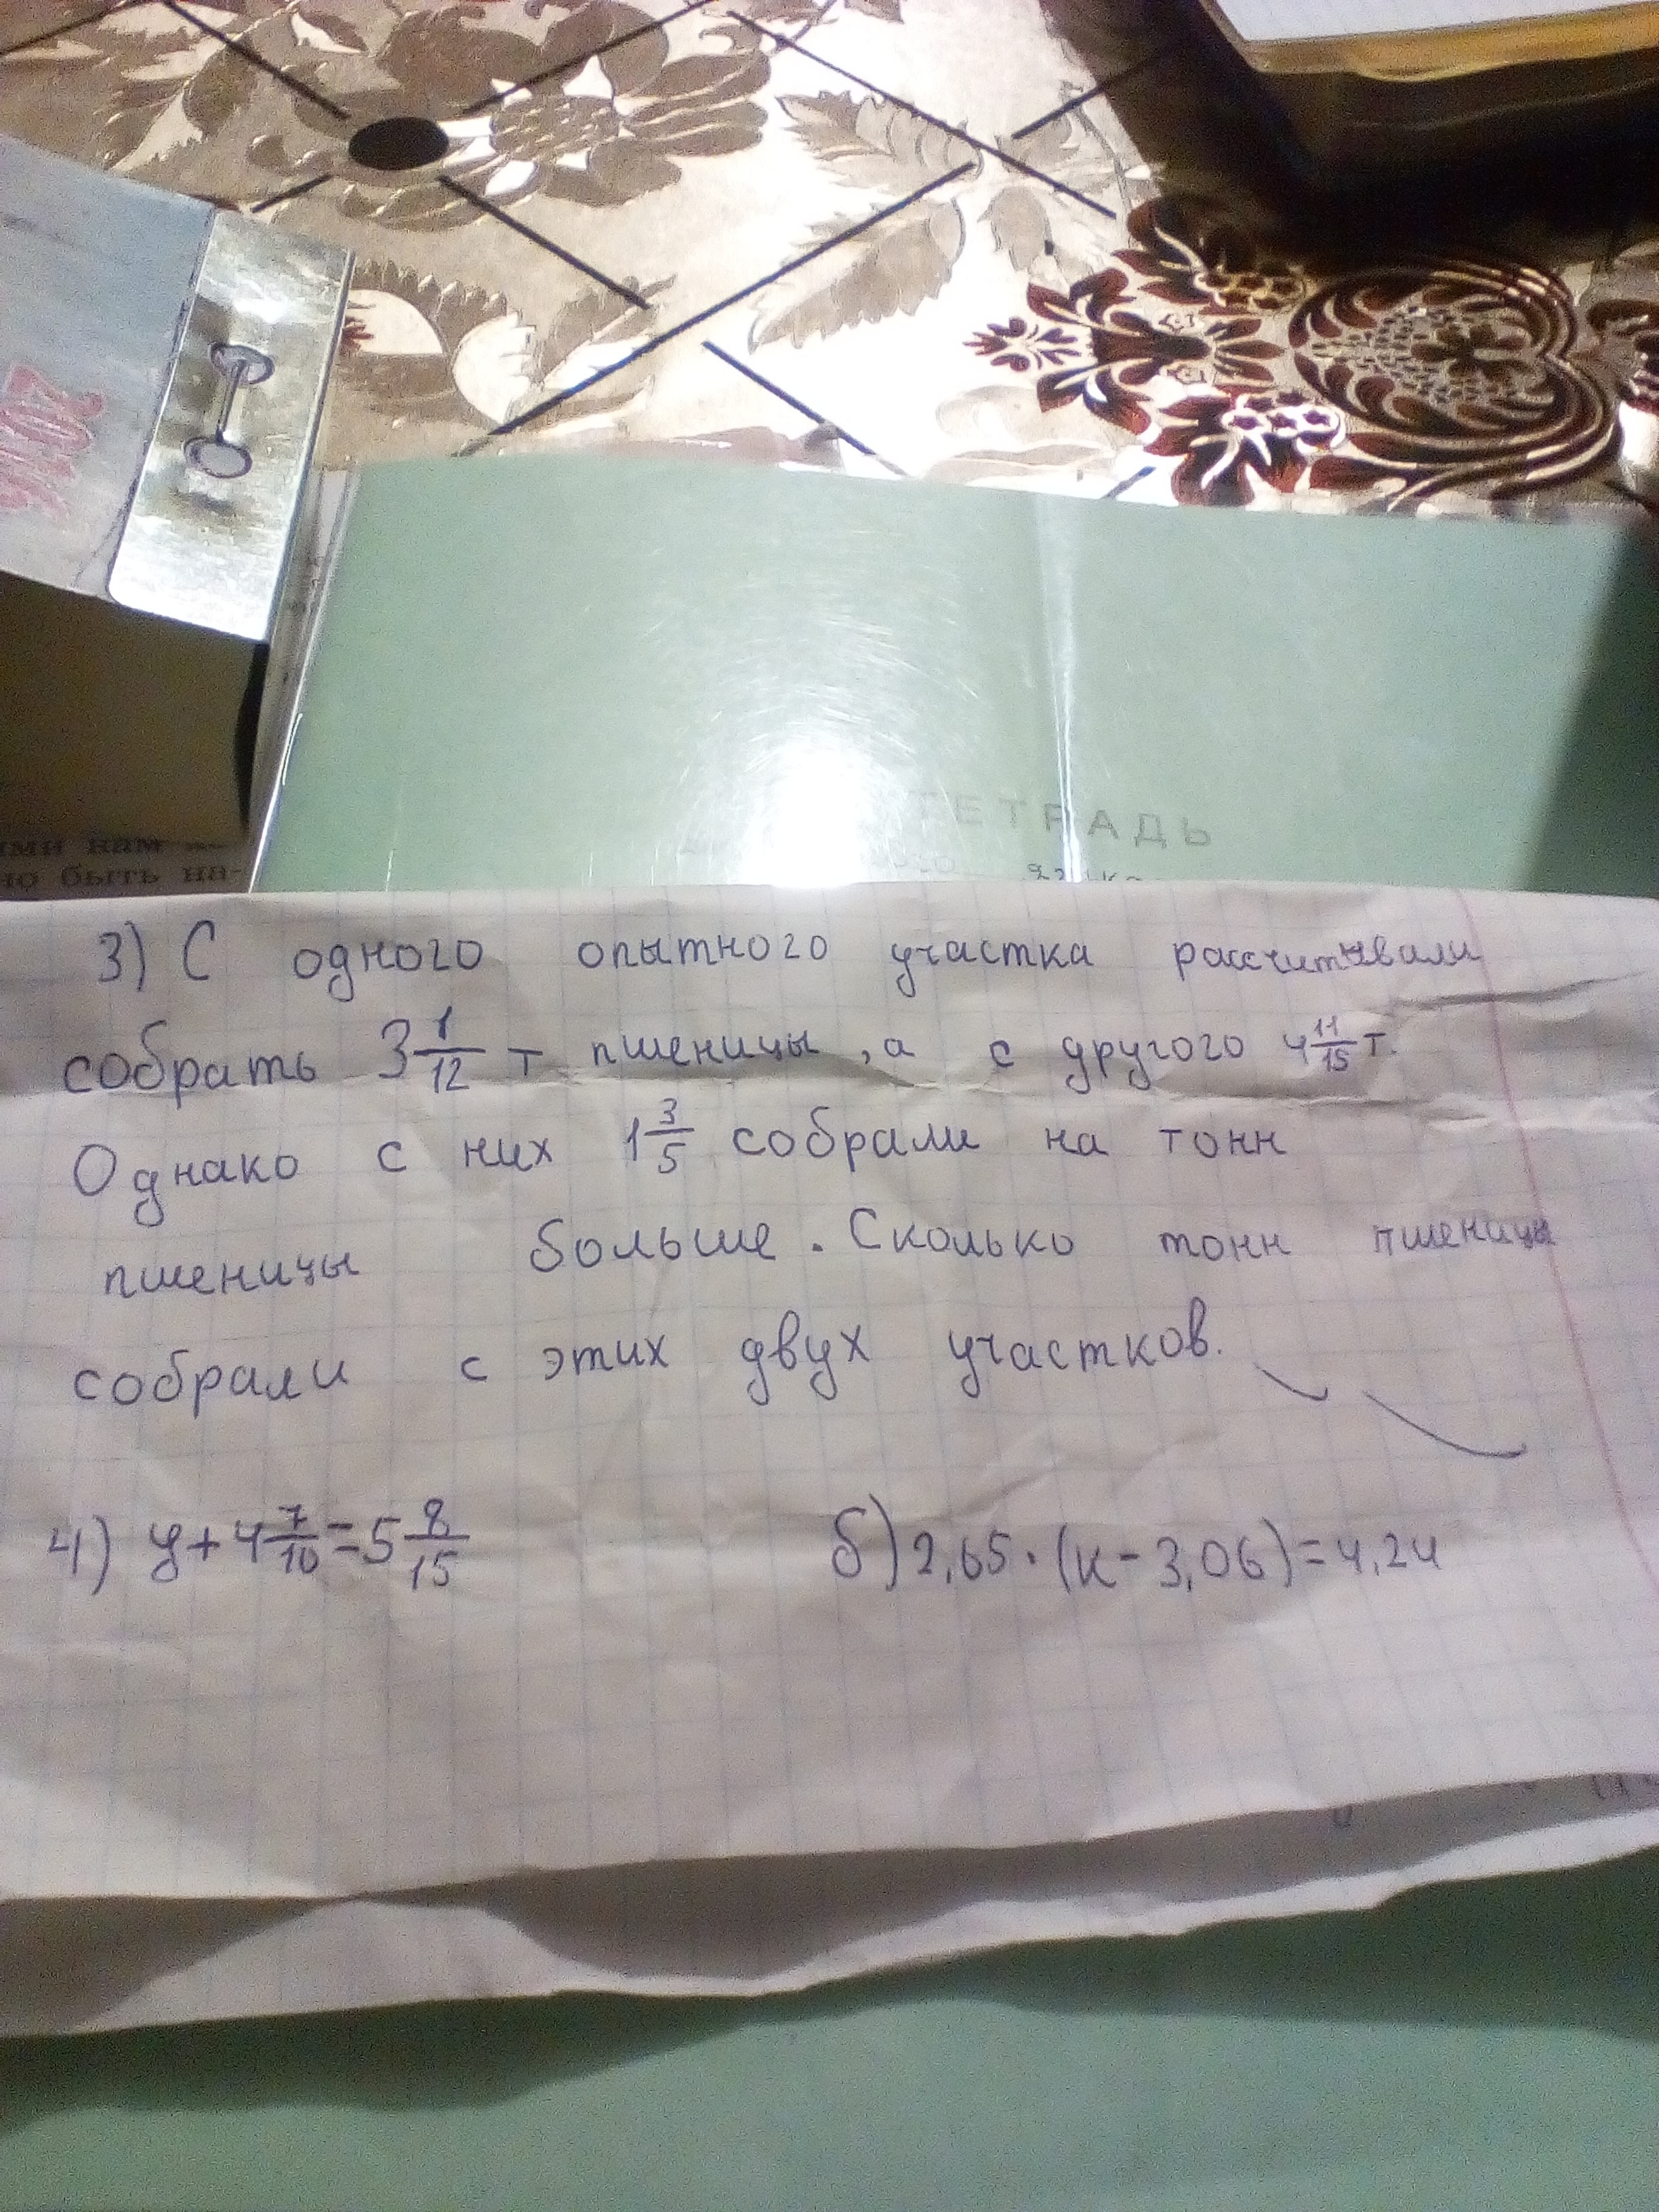 ТЕТРАДЬ
быть на-
3) С одного опытного участка рассчитывали
собрать 3 1/12 т пшеницы, а с другого 4 11/15 т.
Однако с них 1 3/5 собрали на тонн
пшеницы больше. Сколько тонн пшеницы
собрали с этих двух участков.
4) y + 4 7/10 = 5 8/15 б) 2,65 · (к - 3,06) = 4,24